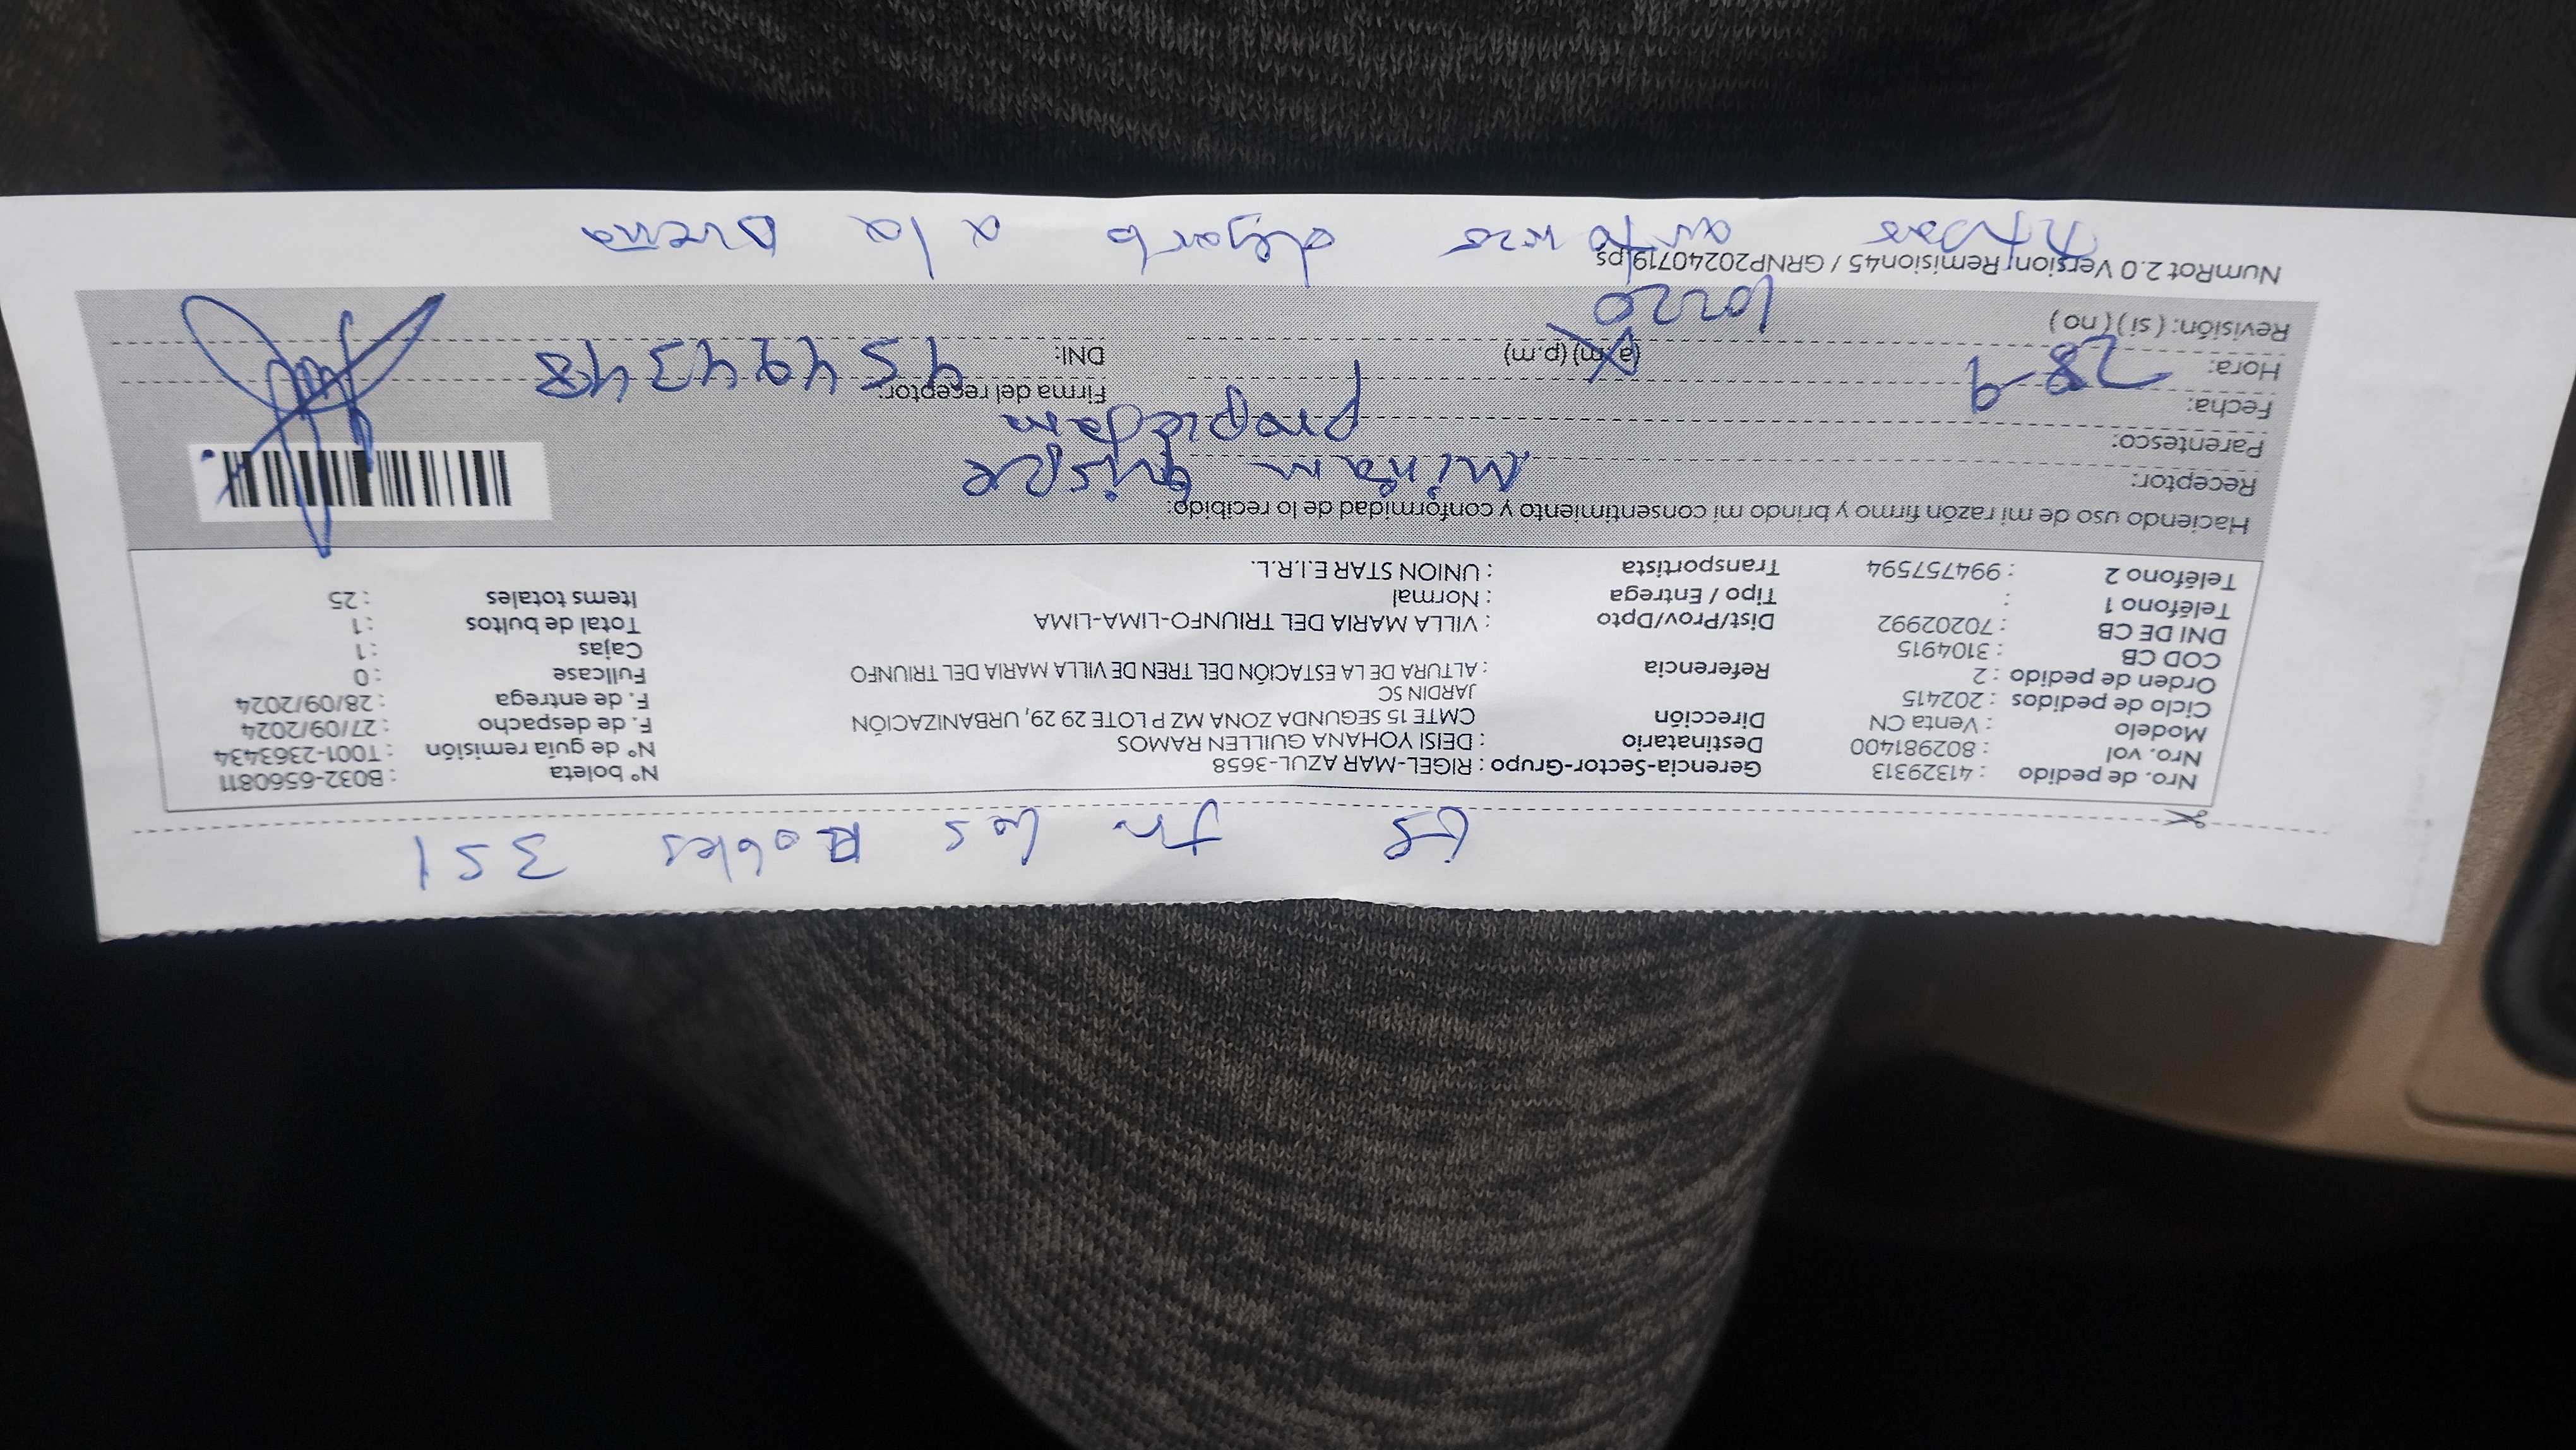 es Jr los Robles 351
Nro. de pedido : 41329313 Gerencia-Sector-Grupo : RIGEL-MAR AZUL-3658 N° boleta : B032-6560811
Nro. vol : 802981400 Destinatario : DEISI YOHANA GUILLEN RAMOS N° de guía remisión : T001-2363434
Modelo : Venta CN Dirección CMTE 15 SEGUNDA ZONA MZ P LOTE 29 29, URBANIZACIÓN F. de despacho : 27/09/2024
Ciclo de pedidos : 202415 JARDIN SC F. de entrega : 28/09/2024
Orden de pedido : 2 Referencia : ALTURA DE LA ESTACIÓN DEL TREN DE VILLA MARIA DEL TRIUNFO Fullcase : 0
COD CB : 3104915 Cajas : 1
DNI DE CB : 70202992 Dist/Prov/Dpto : VILLA MARIA DEL TRIUNFO-LIMA-LIMA Total de bultos : 1
Teléfono 1 : Tipo / Entrega : Normal Items totales : 25
Teléfono 2 : 994757594 Transportista : UNION STAR E.I.R.L.
Haciendo uso de mi razón firmo y brindo mi consentimiento y conformidad de lo recibido:
Receptor: miriam quispe
Parentesco: propiedam
Fecha: 28-9 Firma del receptor:
Hora: (a.m) (p.m) DNI: 45494348
Revisión: ( si ) ( no ) 10:20
NumRot 2.0 Version: Remision45 / GRNP20240719.ps
autorizo dejarlo a la Dueña